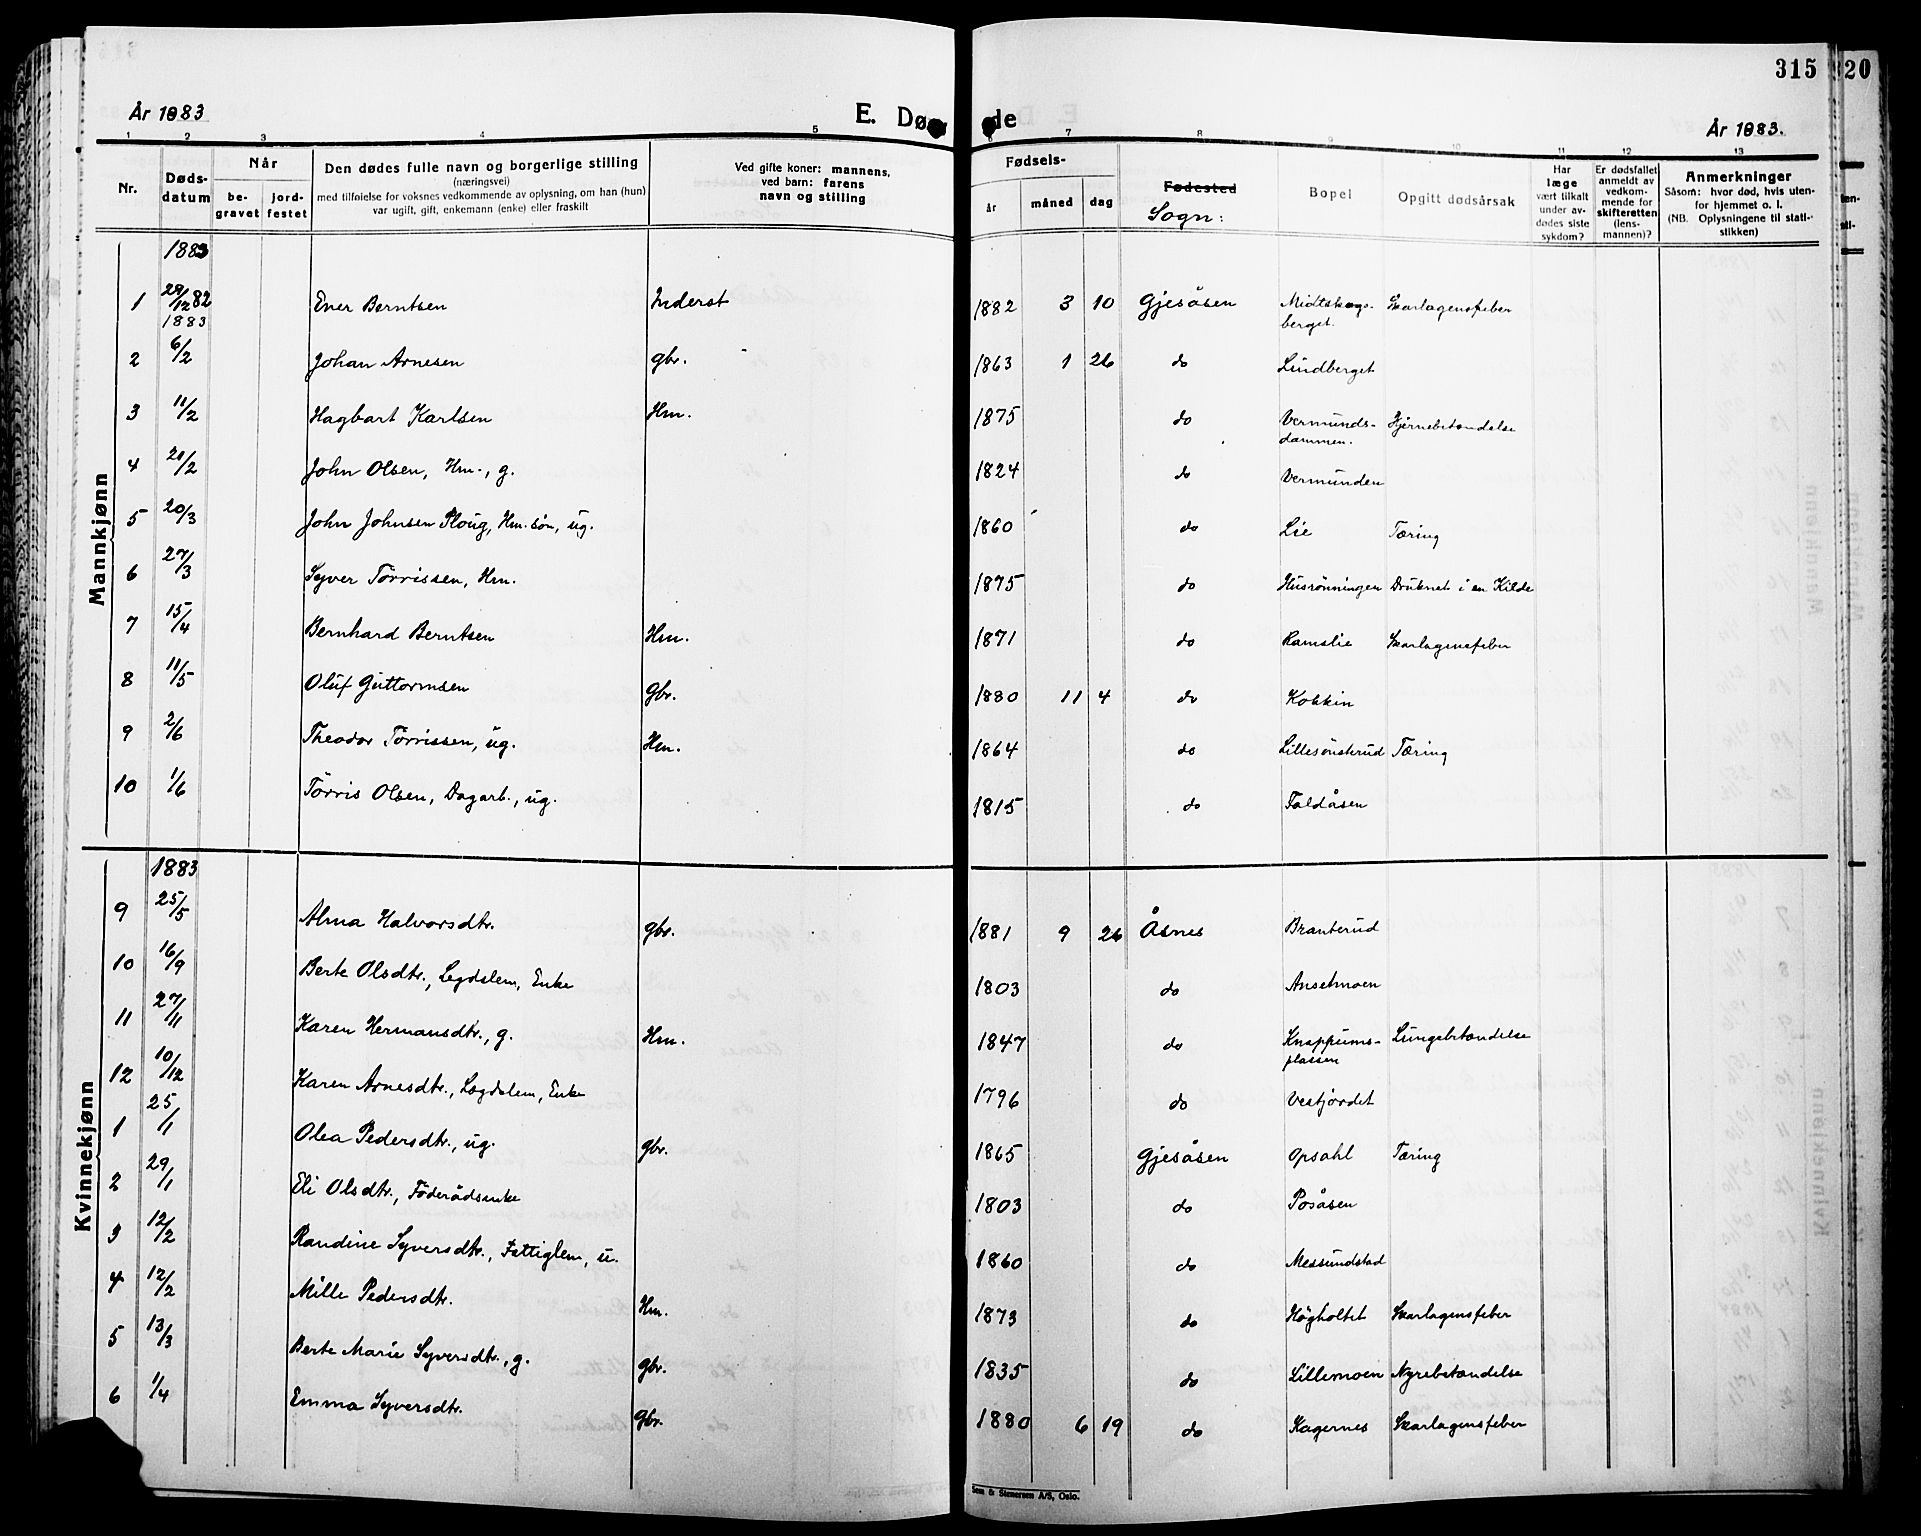 315
320
År 1883
E. Dø de
År 1883.
1 2 3 4 5 6 7 8 9 10 11 12 13
Nr.
Døds-
datum
Når
be-
gravet
jord-
festet
Den dødes fulle navn og borgerlige stilling
(næringsvei)
med tilføielse for voksnes vedkommende av oplysning, om han (hun)
var ugift, gift, enkemann (enke) eller fraskilt
Ved gifte koner: mannens,
ved barn: farens
navn og stilling
Fødsels-
år måned dag
Fødested
Sogn:
Bopel
Opgitt dødsårsak
Har
læge
vært tilkalt
under av-
dødes siste
sykdom?
Er dødsfallet
anmeldt av
vedkom-
mende for
skifteretten
(lens-
mannen)?
Anmerkninger
Såsom: hvor død, hvis uten-
for hjemmet o. l.
(NB. Oplysningene til stati-
stikken)
Mannkjønn
1883
1 29/12 82 Ener Berntsen Inderst 1882 3 10 Gjesåsen Midtskogs- Skarlagensfeber
berget.
1883
2 6/2 Johan Arnesen gbr. 1863 1 26 do Lindberget
3 11/2 Hagbart Karlsen Hm. 1875 do Vermunds- Hjernebetændelse
dammen.
4 20/2 John Olsen, Hm., g. 1824 do Vermunden
5 20/3 John Johnsen Ploug, Hm. søn, ug. 1860 do Lie Tæring
6 27/3 Syver Tørrissen, Hm. 1875 do Husrønningen Druknet i en Kilde
7 15/4 Bernhard Berntsen Hm. 1871 do Ramslie Skarlagensfeber
8 11/5 Oluf Guttormsen Gbr. 1880 11 4 do Kobkin
9 2/6 Theodor Tørrissen, ug. Hm. 1864 do Lillesönsterud Tæring
10 1/6 Tørris Olsen, Dagarb., ug. 1815 do Faldåsen
Kvinnekjønn
1883
9 25/5 Alma Halvorsdtr. gbr. 1881 9 26 Åsnes Branterud
10 16/9 Berte Olsdtr., Legdslem, Enke 1803 do Anselmoen
11 27/11 Karen Hermansdtr., g. Hm. 1847 do Knappums- Lungebetændelse
plassen
12 10/12 Karen Arnesdtr., Lægdslem, Enke 1796 do Vestjordet
1 25/1 Olea Pedersdtr., ug. gbr. 1865 Gjesåsen Opsahl Tæring
2 29/1 Eli Olsdtr., Föderådsenke 1803 do Posåsen
3 12/2 Randine Syversdtr., Fattiglem, u. 1860 do Messundstad
4 12/2 Mille Pedersdtr. Hm. 1873 do Högholtet Skarlagensfeber
5 13/3 Berte Marie Syversdtr., g. gbr. 1835 do Lillemoen Nyrebetændelse
6 1/4 Emma Syversdtr. Gbr. 1880 6 19 do Kagernes Skarlagensfeber
Sem & Stenersen A/S, Oslo.